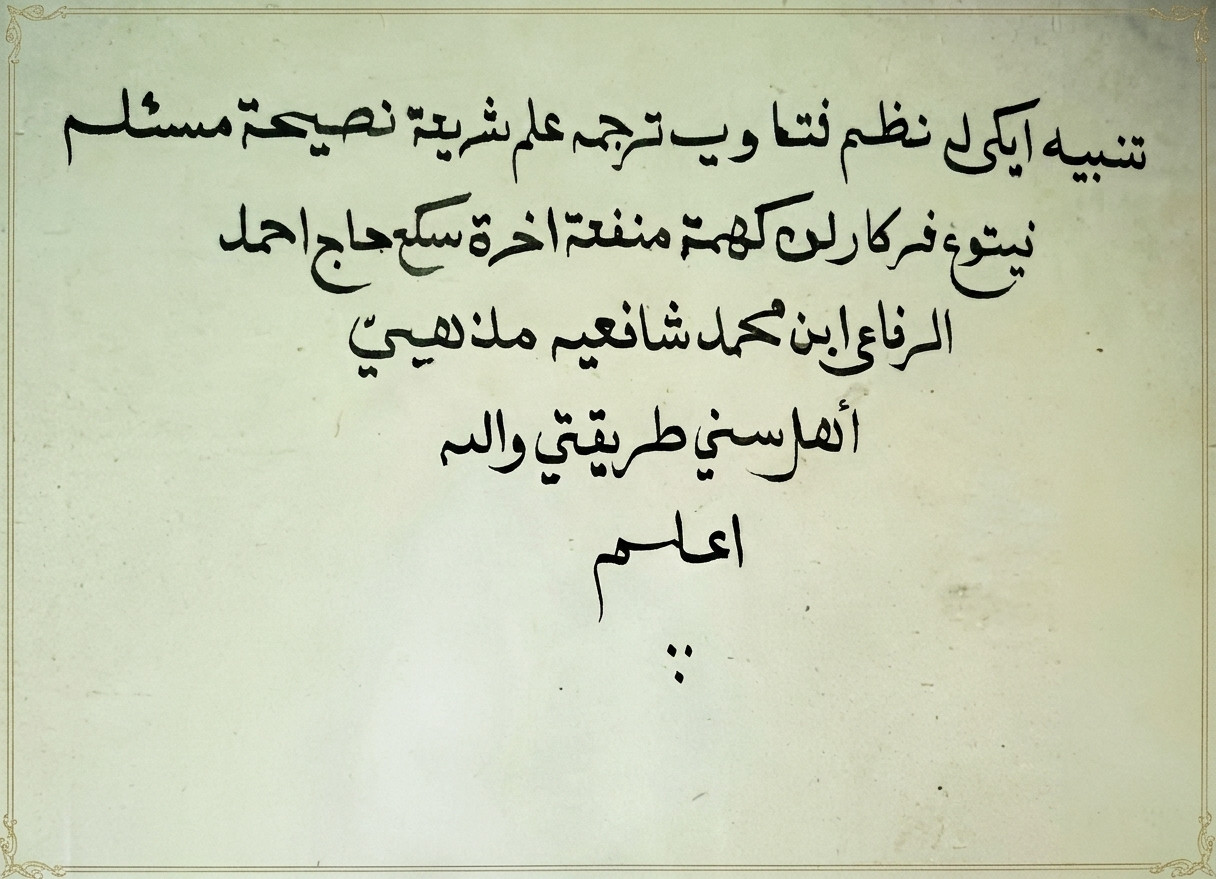 تنبيه ايكى ل نظم فتا ويب ترجمه علم شريعة نصيحة مسئلم
نيتوع فركارلن كهمة منفعة اخرة سكع حاج احمد
الرفاعى ابن محمد شافعيه مذهبيّ
أهل سني طريقتي والله
اعلم